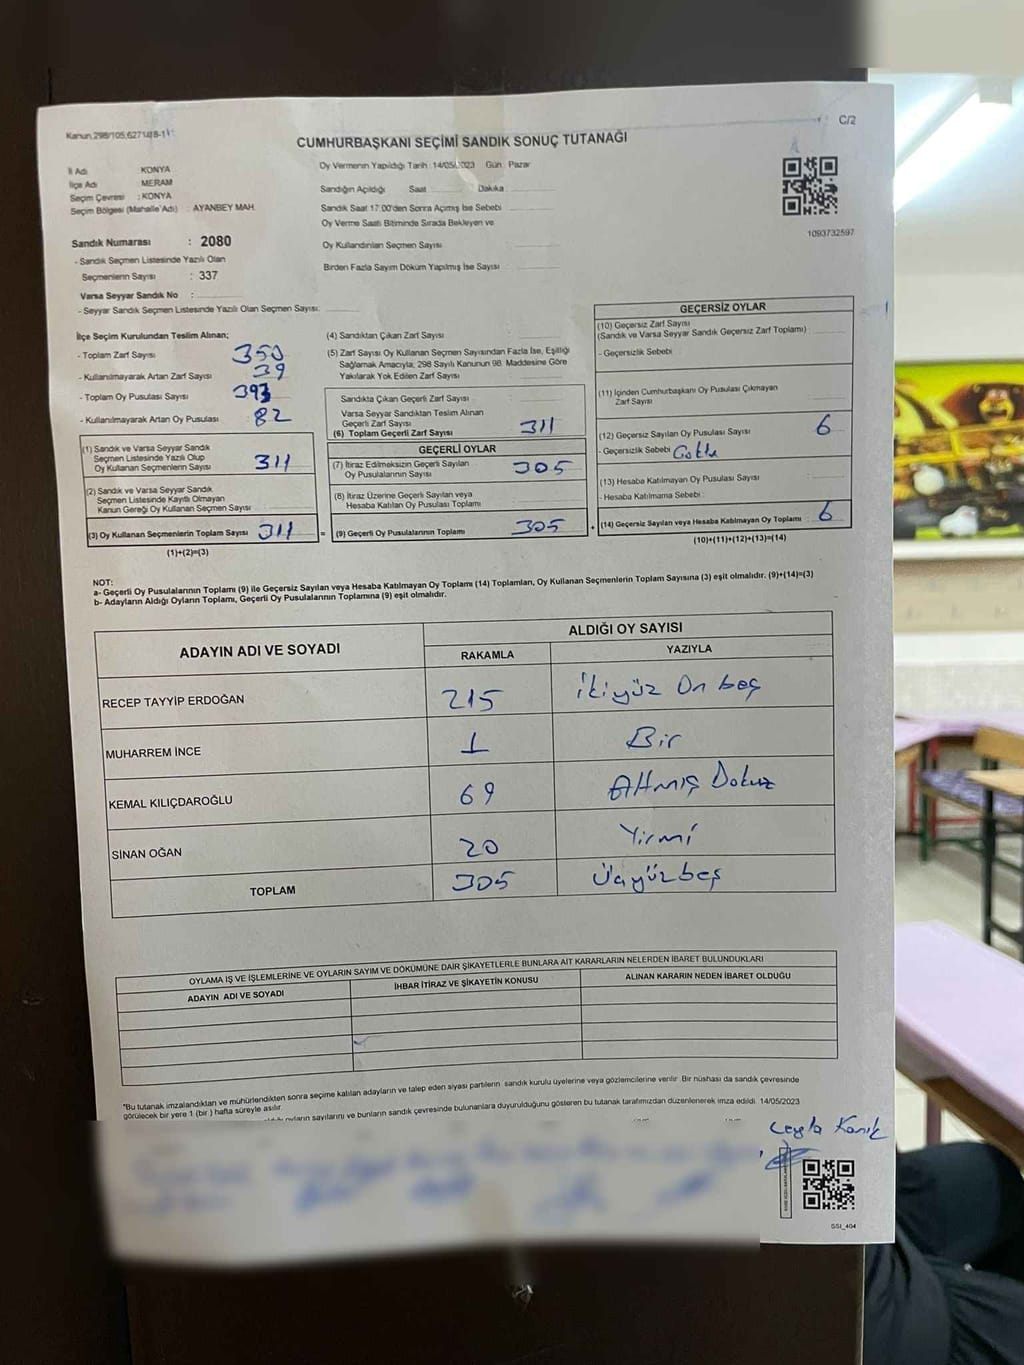 Kanun,298/105,6271/18-1
C/2
CUMHURBAŞKANI SEÇİMİ SANDIK SONUÇ TUTANAĞI
İl Adı KONYA
İlçe Adı MERAM
Seçim Çevresi : KONYA
Seçim Bölgesi (Mahalle Adı) : AYANBEY MAH.
Sandık Numarası : 2080
- Sandık Seçmen Listesinde Yazılı Olan
Seçmenlerin Sayısı : 337
Varsa Seyyar Sandık No :
- Seyyar Sandık Seçmen Listesinde Yazılı Olan Seçmen Sayısı:
Oy Vermenin Yapıldığı Tarih : 14/05/2023 Gün : Pazar
Sandığın Açıldığı Saat Dakika
Sandık Saat 17:00'den Sonra Açımış İse Sebebi
Oy Verme Saati Bitiminde Sırada Bekleyen ve
Oy Kullandırılan Seçmen Sayısı
Birden Fazla Sayım Döküm Yapılmış İse Sayısı
1093732597
İlçe Seçim Kurulundan Teslim Alınan;
- Toplam Zarf Sayısı 350
- Kullanılmayarak Artan Zarf Sayısı 39
- Toplam Oy Pusulası Sayısı 393
- Kullanılmayarak Artan Oy Pusulası 82
(1) Sandık ve Varsa Seyyar Sandık
Seçmen Listesinde Yazılı Olup
Oy Kullanan Seçmenlerin Sayısı 311
(2) Sandık ve Varsa Seyyar Sandık
Seçmen Listesinde Kayıtlı Olmayan
Kanun Gereği Oy Kullanan Seçmen Sayısı
(3) Oy Kullanan Seçmenlerin Toplam Sayısı 311
(1)+(2)=(3)
(4) Sandıktan Çıkan Zarf Sayısı
(5) Zarf Sayısı Oy Kullanan Seçmen Sayısından Fazla İse, Eşitliği
Sağlamak Amacıyla; 298 Sayılı Kanunun 98. Maddesine Göre
Yakılarak Yok Edilen Zarf Sayısı
Sandıkta Çıkan Geçerli Zarf Sayısı
Varsa Seyyar Sandıktan Teslim Alınan
Geçerli Zarf Sayısı
(6) Toplam Geçerli Zarf Sayısı 311
GEÇERLİ OYLAR
(7) İtiraz Edilmeksizin Geçerli Sayılan
Oy Pusulalarının Sayısı 305
(8) İtiraz Üzerine Geçerli Sayılan veya
Hesaba Katılan Oy Pusulası Toplamı
= (9) Geçerli Oy Pusulalarının Toplamı 305
GEÇERSİZ OYLAR
(10) Geçersiz Zarf Sayısı
(Sandık ve Varsa Seyyar Sandık Geçersiz Zarf Toplamı)
- Geçersizlik Sebebi
(11) İçinden Cumhurbaşkanı Oy Pusulası Çıkmayan
Zarf Sayısı
(12) Geçersiz Sayılan Oy Pusulası Sayısı 6
- Geçersizlik Sebebi
(13) Hesaba Katılmayan Oy Pusulası Sayısı
- Hesaba Katılmama Sebebi :
+ (14) Geçersiz Sayılan veya Hesaba Katılmayan Oy Toplamı : 6
(10)+(11)+(12)+(13)=(14)
NOT:
a- Geçerli Oy Pusulalarının Toplamı (9) ile Geçersiz Sayılan veya Hesaba Katılmayan Oy Toplamı (14) Toplamları, Oy Kullanan Seçmenlerin Toplam Sayısına (3) eşit olmalıdır. (9)+(14)=(3)
b- Adayların Aldığı Oyların Toplamı, Geçerli Oy Pusulalarının Toplamına (9) eşit olmalıdır.
ADAYIN ADI VE SOYADI
ALDIĞI OY SAYISI
RAKAMLA YAZIYLA
RECEP TAYYİP ERDOĞAN 215 İkiyüz On beş
MUHARREM İNCE 1 Bir
KEMAL KILIÇDAROĞLU 69 Altmış Dokuz
SİNAN OĞAN 20 Yirmi
TOPLAM 305 Üçyüzbeş
OYLAMA İŞ VE İŞLEMLERİNE VE OYLARIN SAYIM VE DÖKÜMÜNE DAİR ŞİKAYETLERLE BUNLARA AİT KARARLARIN NELERDEN İBARET BULUNDUKLARI
ADAYIN ADI VE SOYADI İHBAR İTİRAZ VE ŞİKAYETİN KONUSU ALINAN KARARIN NEDEN İBARET OLDUĞU
"Bu tutanak imzalandıktan ve mühürlendikten sonra seçime katılan adayların ve talep eden siyasi partilerin sandık kurulu üyelerine veya gözlemcilerine verilir. Bir nüshası da sandık çevresinde
görülecek bir yere 1 (bir ) hafta süreyle asılır.
oyların sayılarını ve bunların sandık çevresinde bulunanlara duyurulduğunu gösteren bu tutanak tarafımızdan düzenlenerek imza edildi. 14/05/2023
Leyla Kanık
SSI_404